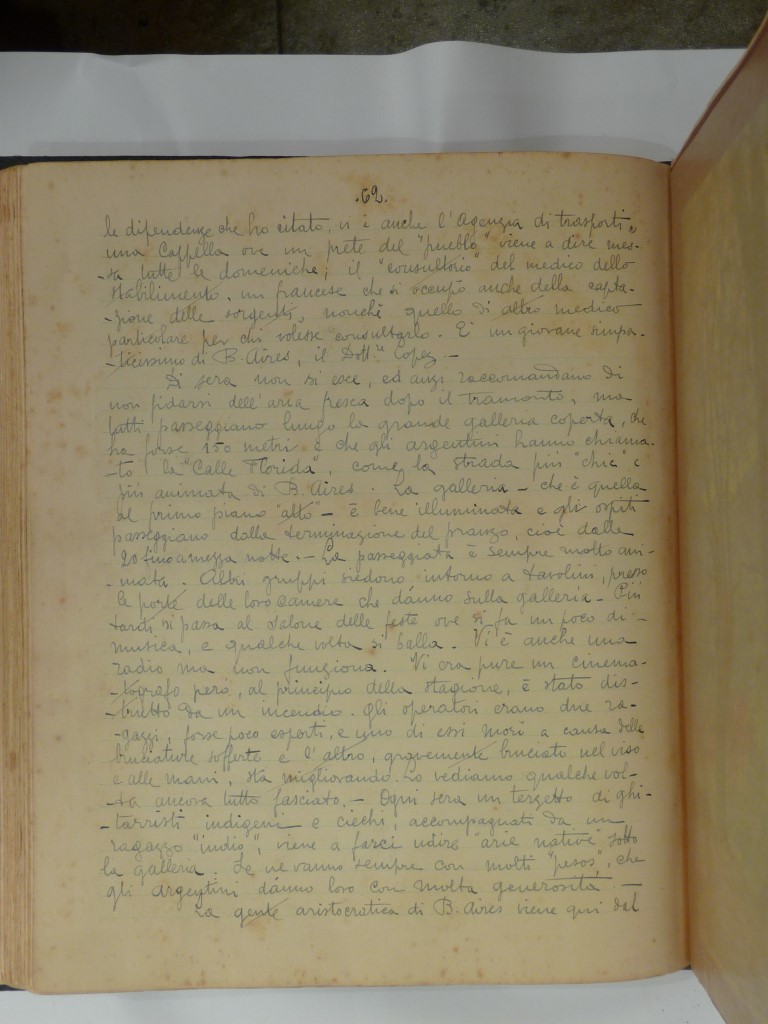 .62.
le dipendenze che ho citato, vi è anche l'Agenzia di trasporti,
una Cappella ove un prete del "pueblo" viene a dire mes-
-sa tutte le domeniche; il "consultorio" del medico dello
stabilimento, un francese che si occupò anche della capta-
-zione delle sorgenti, nonchè quello di altro medico
particolare per chi volesse consultarlo. È un giovane simpa-
-ticissimo di B. Aires, il Dott.r Lopez. -
Di sera non si esce, ed anzi raccomandano di
non fidarsi dell'aria fresca dopo il tramonto, ma
tutti passeggiano lungo la grande galleria coperta, che
ha forse 150 metri e che gli argentini hanno chiama-
-to la "Calle Florida", come la strada più "chic" e
più animata di B. Aires. La galleria - che è quella
al primo piano "alto" - è bene illuminata e gli ospiti
passeggiano dalla terminazione del pranzo, cioè dalle
20 fino a mezza notte. - La passeggiata è sempre molto ani-
-mata. Altri gruppi siedono intorno a tavolini, presso
le porte delle loro camere che dánno sulla galleria - Più
tardi si passa al salone delle feste ove si fa un poco di -
musica, e qualche volta si balla. Vi è anche una
radio ma non funziona. Vi era pure un cinema-
-tografo però, al principio della stagione, è stato dis-
-trutto da un incendio. Gli operatori erano due ra-
-gazzi, forse poco esperti, e uno di essi morì a causa delle
bruciature sofferte e l'altro, gravemente bruciato nel viso
e alle mani, sta migliorando. Lo vediamo qualche vol-
-ta ancora tutto fasciato. - Ogni sera un terzetto di ghi-
-tarristi indigeni e ciechi, accompagnati da un
ragazzo "indio", viene a farci udire "arie native" sotto
la galleria. Se ne vanno sempre con molti "pesos", che
gli argentini dánno loro con molta generosità. -
La gente aristocratica di B. Aires viene qui dal